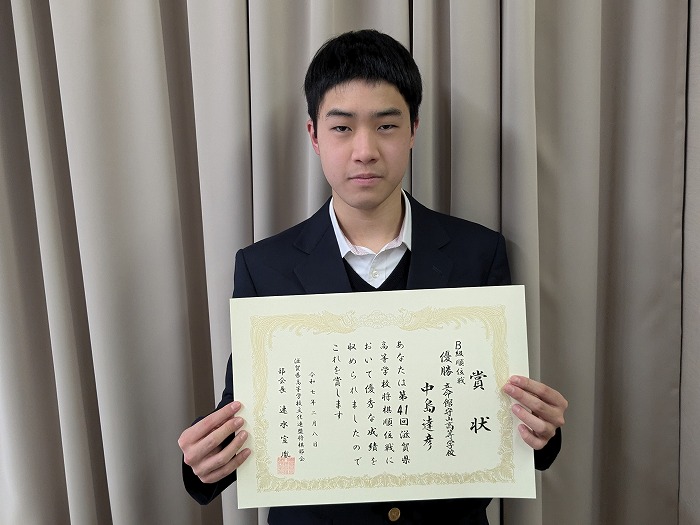 賞状
B級順位戦
優勝 立命館守山高等学校
中島達彦
あなたは第41回滋賀県
高等学校将棋順位戦に
おいて優秀な成績を
収められましたので
これを賞します
令和七年二月八日
滋賀県高等学校文化連盟将棋部会
部会長 速水宣